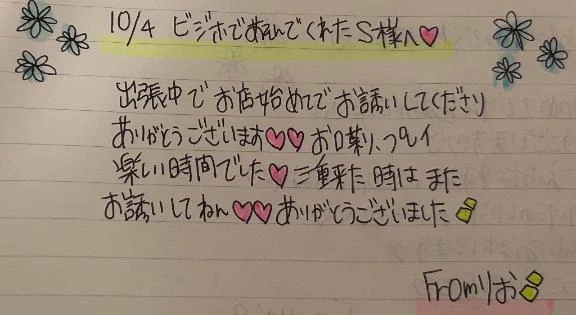 10/4 ビジホであそんでくれたS様へ♡
出張中でお店始めてでお誘いしてくださり
ありがとうございます♡♡ お口
楽しい時間でした♡三重来た時はまた
お誘いしてねん♡♡ありがとうございました
Fromりお